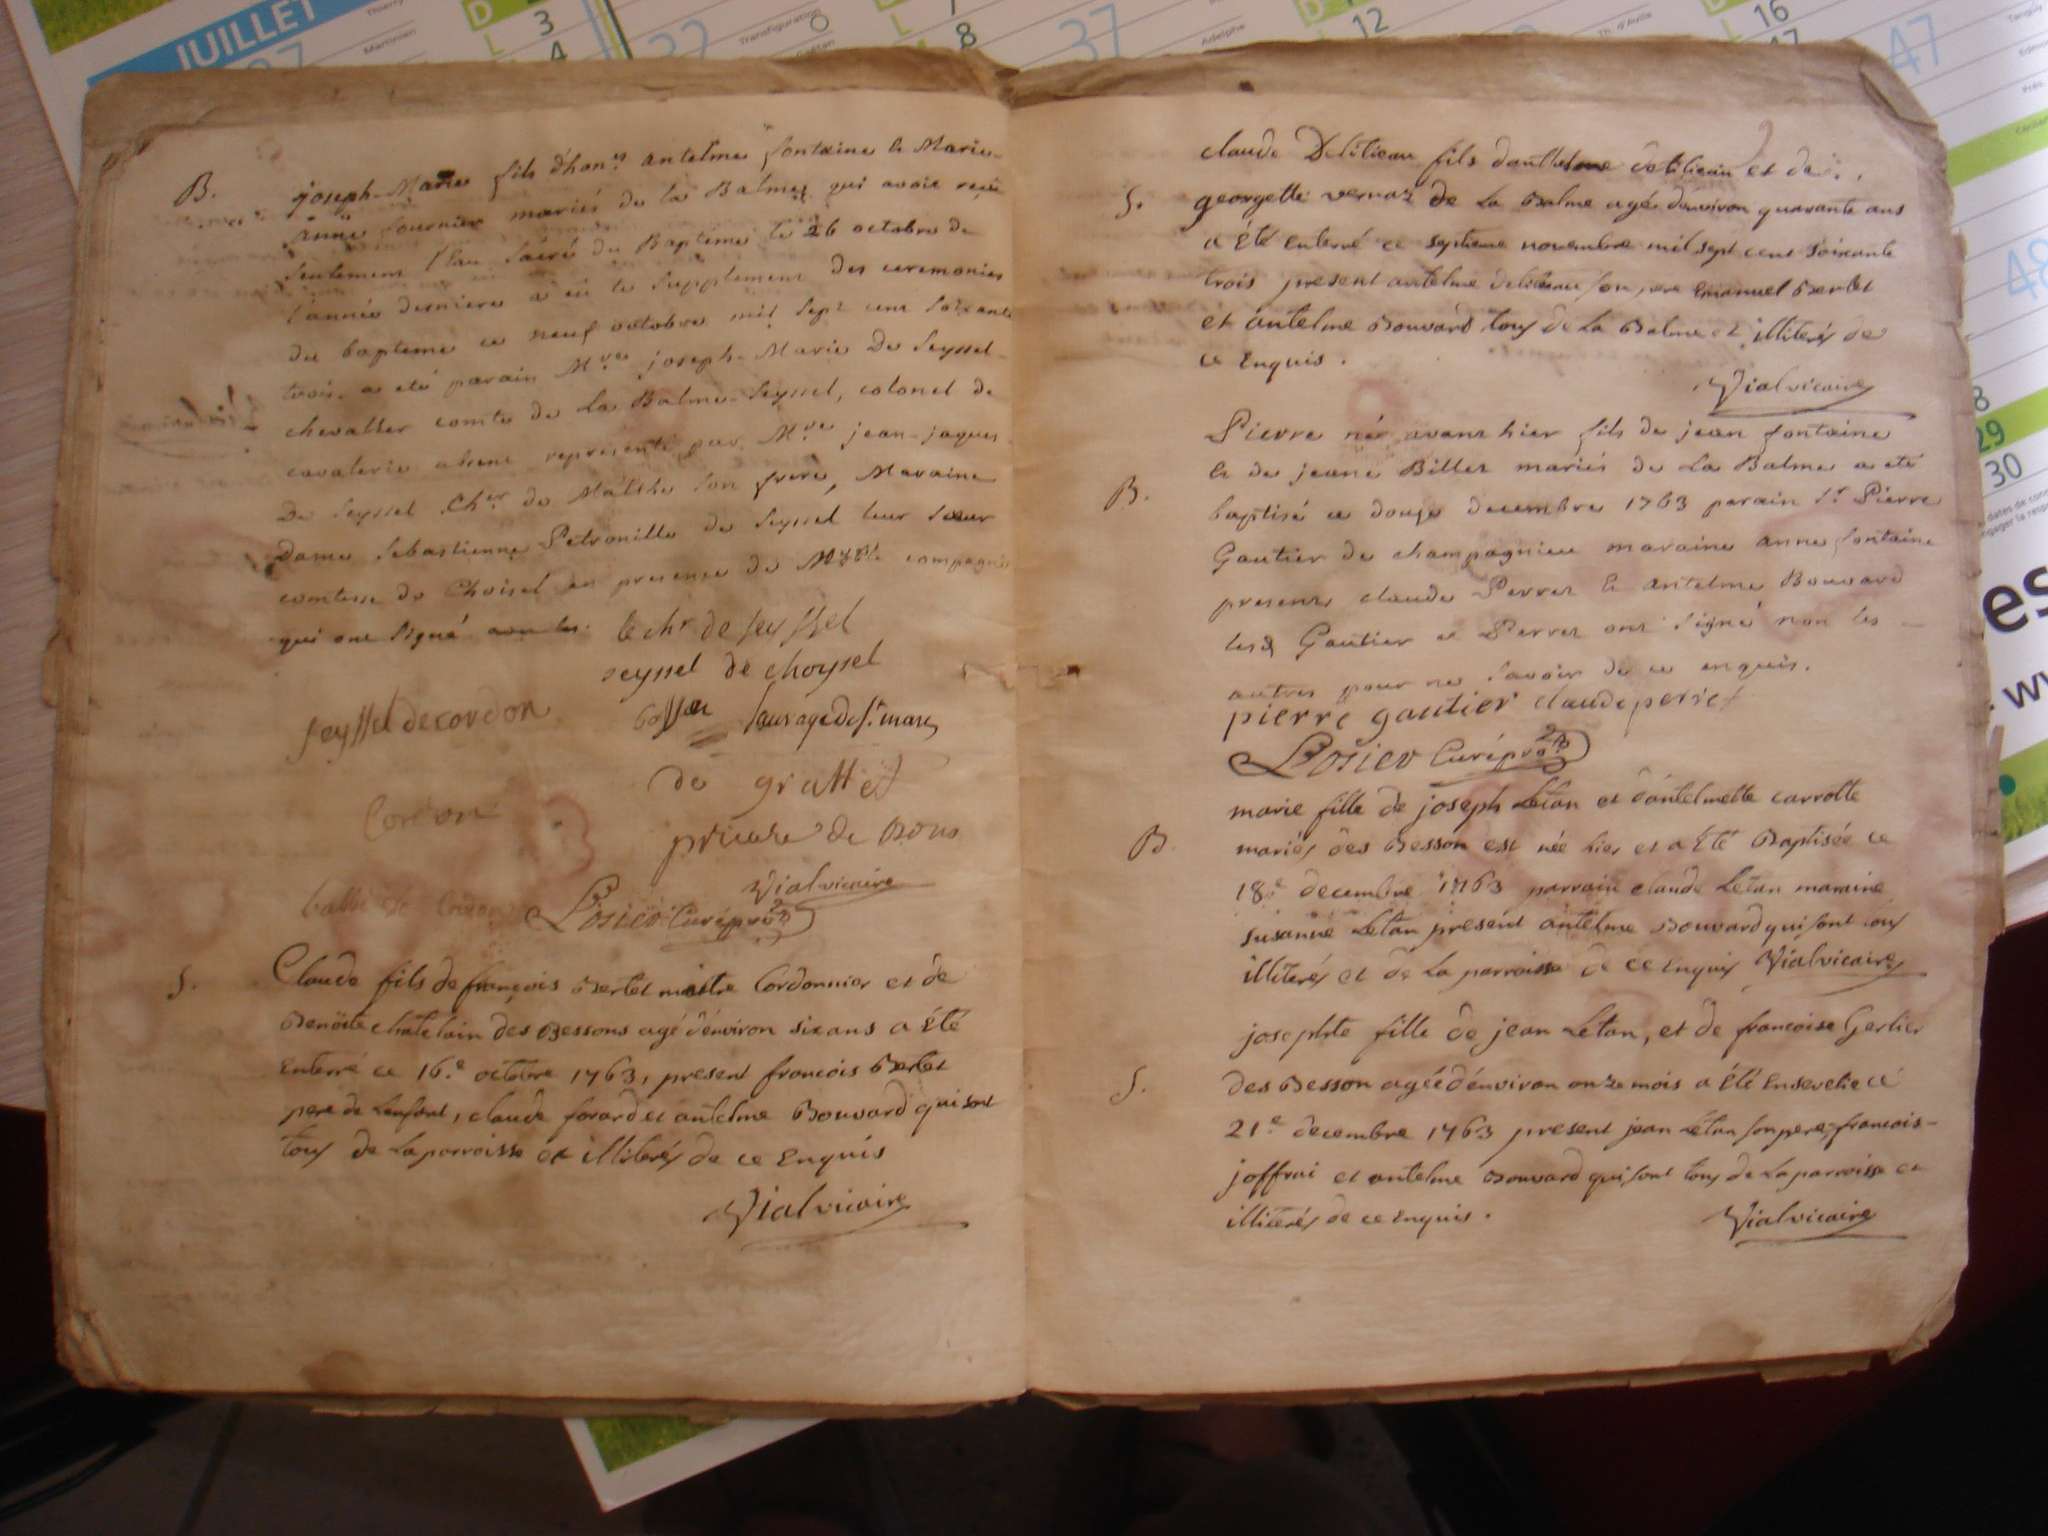 JUILLET
D
3
L
4
32
Transfiguration
Martinien
L
8
37
Adelphe
D
L
12
Th. d'Avila
16
17
47
Tanguy
48
29
30
es
B.
joseph-Marie fils d'hon.ble antelme fontaine & Marie
Anne fournier mariés de la Balme qui avoit reçu
seulement l'eau sacré du Baptême le 26 octobre de
l'année derniere a eu le supplement des ceremonies
du bapteme ce neuf octobre mil sept cent soixante
trois. a eté parain M.re joseph-Marie de Seyssel
chevallier comte de La Balme-Seyssel, colonel de
cavalerie absent representé par M.re jean-jaques
De Seyssel Ch.er de Malthe son frere, Maraine
Dame Sebastienne Petronille de Seyssel leur sœur
comtesse de Choisel en presence de compagnie
qui ont signé
le chr de seyssel
seyssel de choysel
seyssel decordon
sauvage de st. marc
Cordon
de grattet
prieure de Bons
Vial vicaire
Posieo Curé
S.
Claude fils de françois Berlet maitre Cordonnier et de
Benoite chatelain des Bessons agé d'environ six ans a été
Enterré ce 16.e octobre 1763, present francois Berlet
pere de Lenfant, claude forard et antelme Bouvard qui sont
tous de La parroisse et illiterés de ce Enquis
Vial vicaire
claude Delilieau fils d'anthelme delilieau et de
S.
georgette vernaz de La Balme agé d'environ quarante ans
a été Enterré ce septieme novembre mil sept cent soixante
trois present antelme delilieau son pere Emanuel Berlet
et antelme Bouvard tous de La Balme et illiterés de
ce Enquis.
Vial vicaire
Pierre né avant hier fils de jean fontaine
& de jeane Billet mariés de La Balme a eté
B.
baptisé ce douze decembre 1763 parain Sr Pierre
Gautier de champagnieu maraine anne fontaine
presents claude Perret & antelme Bouvard
lesd Gautier et Perret ont signé non les
autres pour ne savoir de ce enquis.
pierre gautier claude perret
Posieo Curé
marie fille de joseph Letan et d'antelmette carrotte
B
mariés des Besson est née hier et a été Baptisée ce
18.e decembre 1763 parrain claude Letan maraine
susanne Letan present antelme Bouvard qui sont tous
illiterés et de La parroisse de ce Enquis Vial vicaire
josephte fille de jean Letan, et de francoise Gerlier
S.
des Besson agée d'environ onze mois a été Ensevelie ce
21.e decembre 1763 present jean Letan son pere, francois
joffrai et antelme Bouvard qui sont tous de La parroisse et
illiterés de ce Enquis.
Vial vicaire